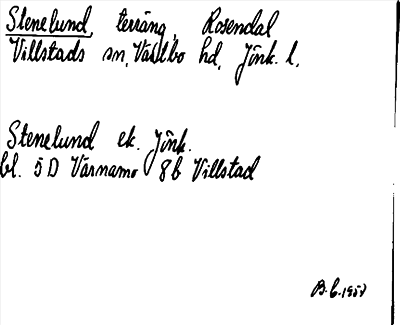 Stenelund, terräng, Rosendal
Villstads sn, Västbo hd, Jönk. l.
Stenelund ek. Jönk.
bl. 5D Värnamo 8b Villstad
B.E. 1958